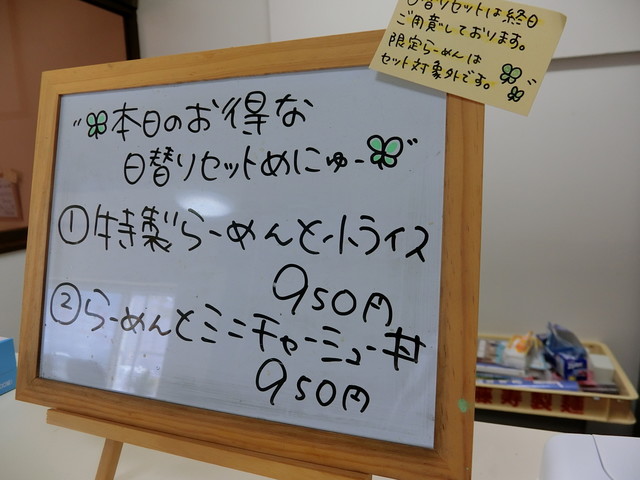 日替りセットは終日
ご用意しております。
限定らーめんは
セット対象外です。
本日のお得な
日替りセットめにゅー
①特製らーめんと小ライス
950円
②らーめんとミニチャーシュー丼
950円